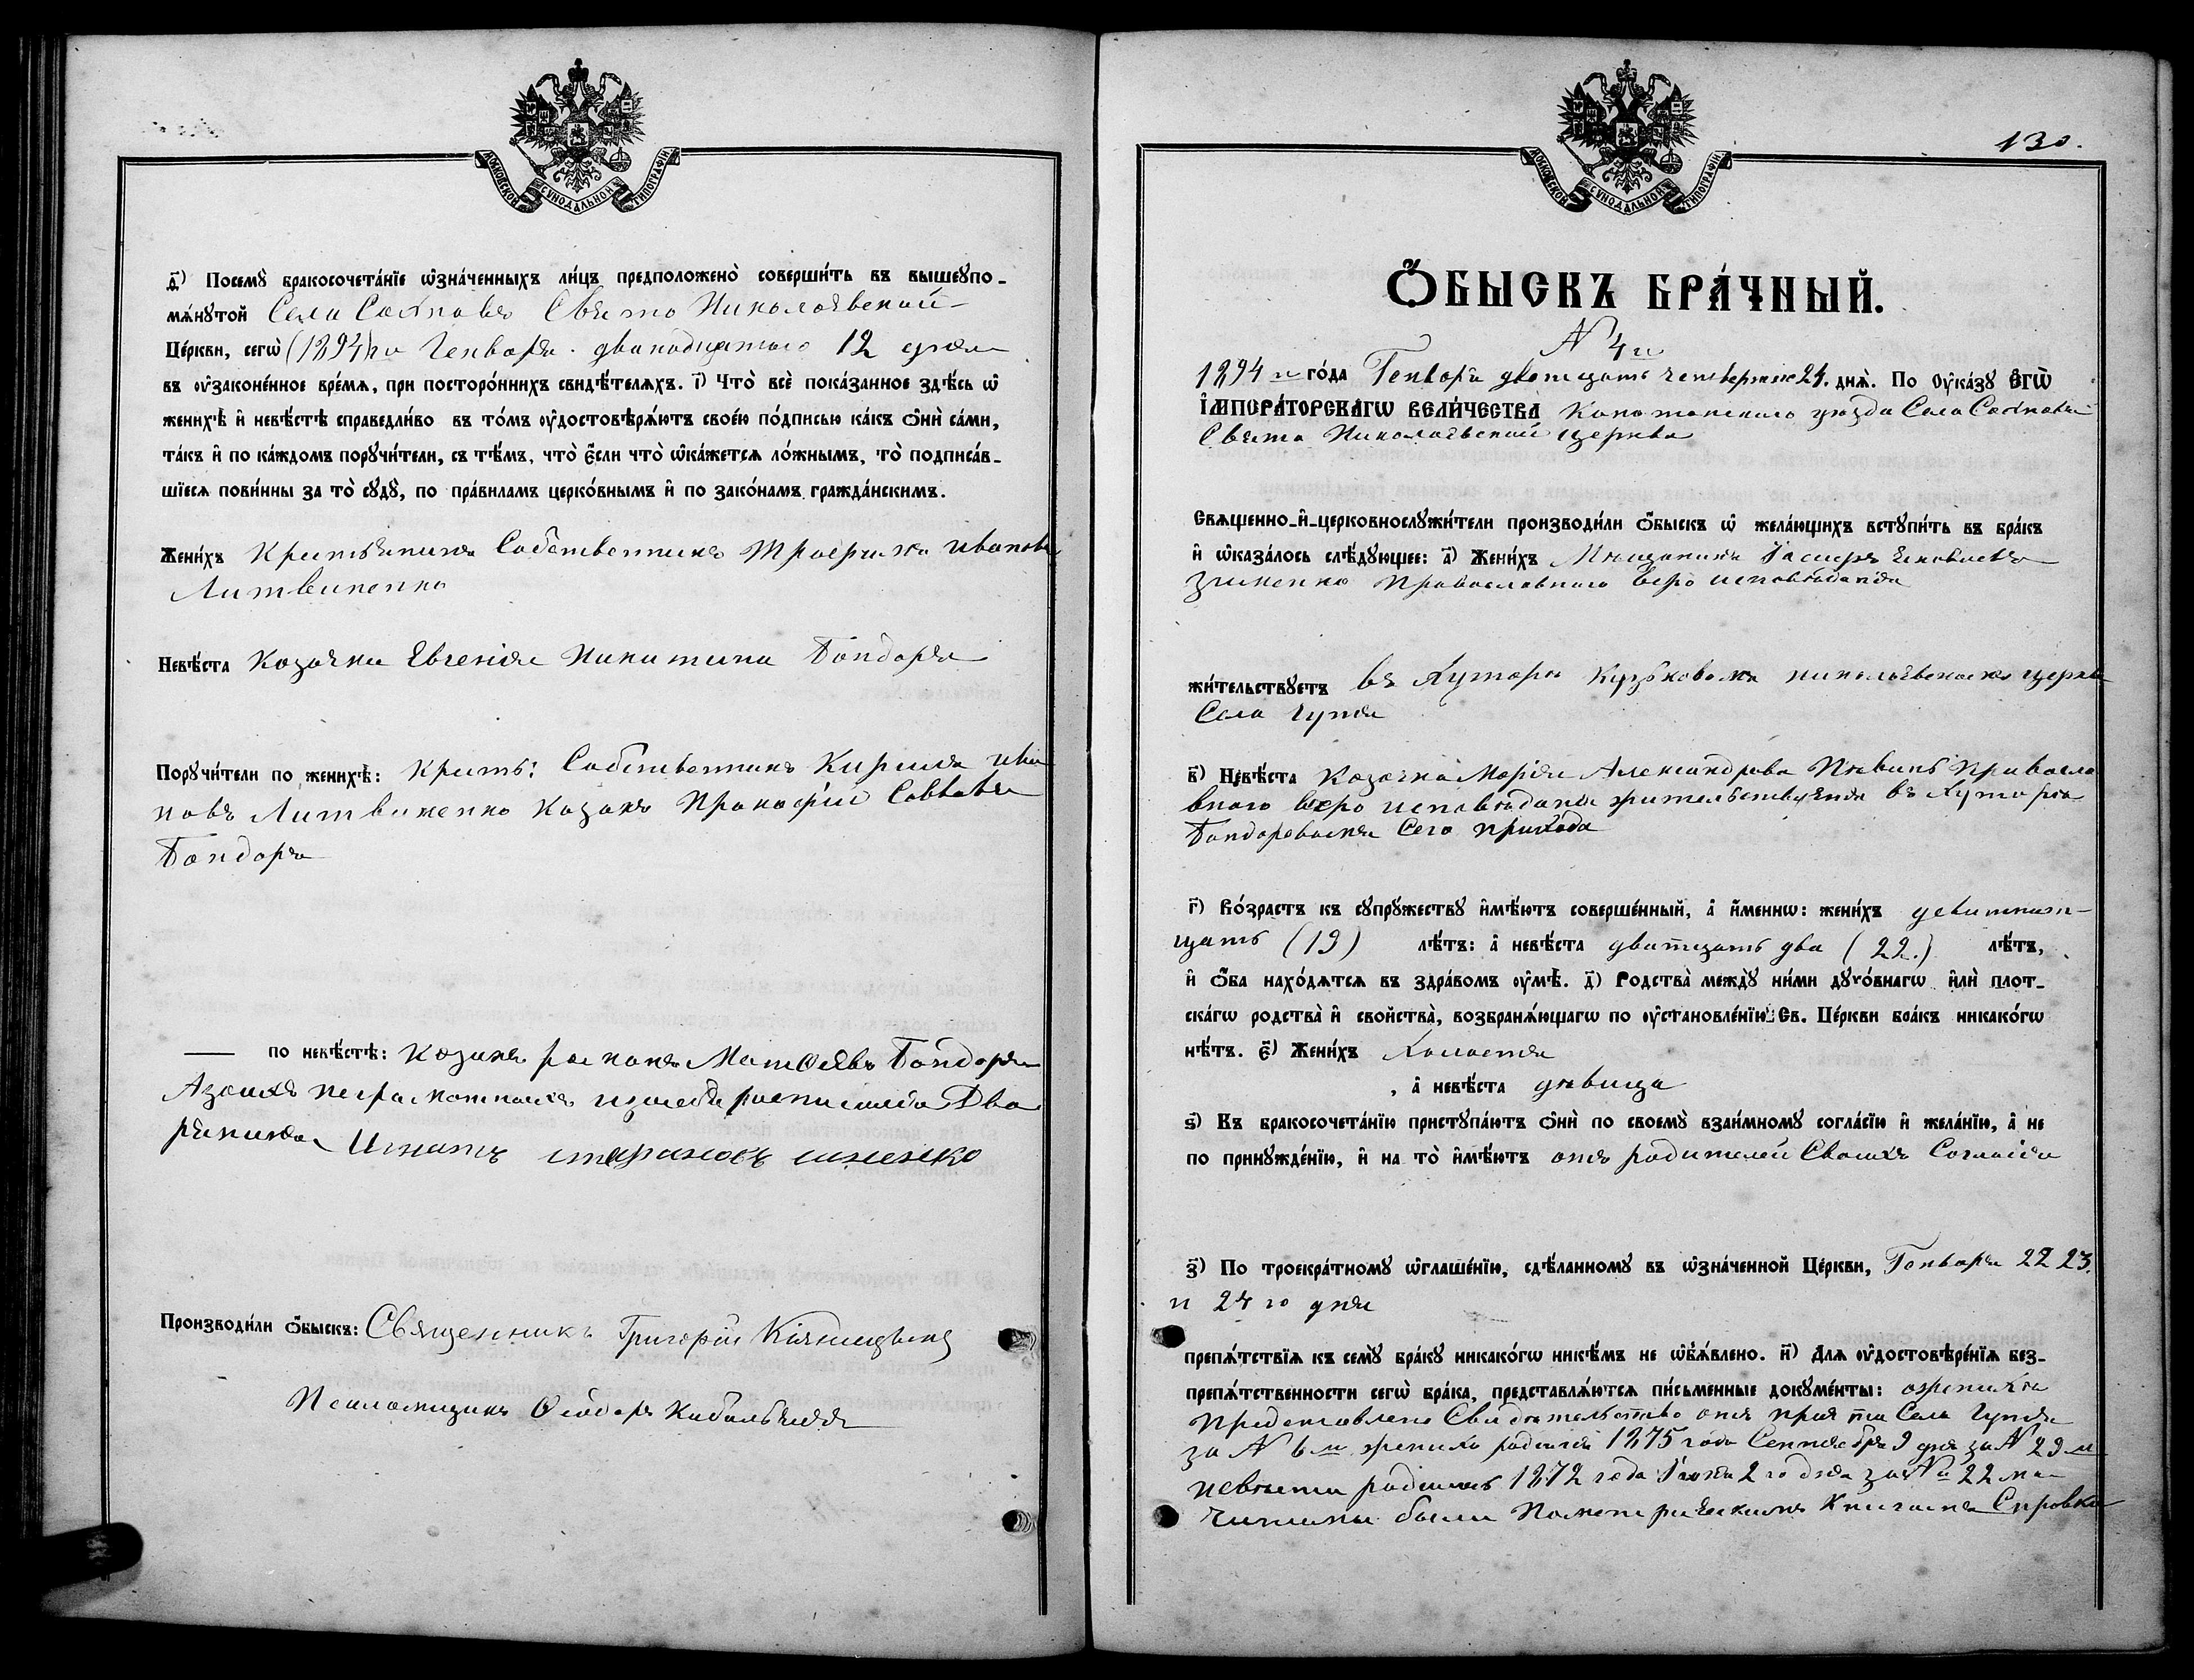 МОСКОВСКОЙ СѴНОДАЛЬНОЙ ТИПОГРАФІИ
д҃) Посемꙋ̀ бракосочета́нїе ѡ҆зна́ченныхъ ли́цъ предположено̀ соверши́ть въ вышеꙋпо-
мѧ́нꙋтой Села Свято Николаевской
Це́ркви, сегѡ̀ (1894) го Генваря двенадцатаго 12 дня
въ ᲂу҆законе́нное вре́мѧ, при посторо́ннихъ свидѣ́телѧхъ. і҃) Что̀ всѐ пока́занное здѣ́сь ѡ҆
женихѣ̀ и҆ невѣ́стѣ справедли́во въ то́мъ ᲂу҆достовѣрѧ́ютъ свое́ю по́дписью ка́къ ѻ҆нѝ са́ми,
та́къ и҆ по ка́ждомъ порꙋчи́тели, съ тѣ́мъ, что̀ є҆́сли что̀ ѡ҆ка́жетсѧ ло́жнымъ, то̀ подписа́в-
шїесѧ пови́нны за то̀ сꙋдꙋ̀, по пра́виламъ церко́внымъ и҆ по зако́намъ гражда́нскимъ.
Жени́хъ Собственникъ Иванов
Литвиненко
Невѣ́ста Козачка Евгенія Никитина Бондаря
Порꙋчи́тели по женихѣ̀: Крить: Собственникъ Кирилъ Ива
новъ Литвиненко Козакъ Прокофій Савовъ
Бондарь
по невѣ́стѣ: Козакъ Романъ Матѳѣевъ Бондарь
А за нихъ неграмотныхъ росписался Дво
рянинъ Игнатъ
Производи́ли ѻ҆́быскъ: Священникъ Григорій
Псаломщикъ Ѳеодоръ
130.
МОСКОВСКОЙ СѴНОДАЛЬНОЙ ТИПОГРАФІИ
Ѻ҆́БЫСКЪ БРА́ЧНЫЙ.
N 4 й
1894 го го́да Генваря двадцать четвертаго 24. днѧ̀. По ᲂу҆ка́зꙋ Є҆ГѠ̀
І҆МПЕРА́ТОРСКАГѠ ВЕЛИ́ЧЕСТВА Конотопского уѣзда Села
Свято Николаевской церкви
Свѧщенно-и҆-церковнослꙋжи́тели производи́ли ѻ҆́быскъ ѡ҆ жела́ющихъ встꙋпи́ть въ бра́къ
и҆ ѡ҆каза́лось слѣ́дꙋющее: а҃) Жени́хъ Мѣщанинъ Яковлевъ
Зиненко Православнаго вѣро исповѣданія
жи́тельствꙋетъ въ Хуторѣ Кузьковомъ николаевской церкви
Села
в҃) Невѣ́ста Козачка Марія Александрова Православ
вного вѣро исповѣданія жительствуетъ въ Хуторѣ
Бондаревскомъ Сего прихода
г҃) Во́зрастъ къ сꙋпрꙋ́жествꙋ и҆мѣ́ютъ соверше́нный, а҆ и҆́меннѡ: жени́хъ девятнат-
цать (19) лѣ́тъ: а҆ невѣ́ста дватцать два (22.) лѣ́тъ,
и҆ ѻ҆́ба нахо́дѧтсѧ въ здра́вомъ ᲂу҆мѣ̀. д҃) Родства̀ междꙋ̀ ни́ми дꙋхо́внагѡ и҆лѝ плот-
ска́гѡ родства̀ и҆ свойства̀, возбранѧ́ющагѡ по ᲂу҆становле́нїю Св. Це́ркви бра́къ никако́гѡ
нѣ́тъ. є҃) Жени́хъ Холостъ
, а҆ невѣ́ста дѣвица
ѕ҃) Къ бракосочета́нїю пристꙋпа́ютъ ѻ҆нѝ по своемꙋ̀ взаи́мномꙋ согла́сїю и҆ жела́нїю, а҆ не
по принꙋжде́нїю, и҆ на то̀ и҆мѣ́ютъ отъ родителей Своихъ Согласіе
з҃) По троекра́тномꙋ ѡ҆глаше́нїю, сдѣ́ланномꙋ въ ѡ҆зна́ченной Це́ркви, Генваря 22 23.
и 24 го дня
препѧ́тствїѧ къ семꙋ̀ бра́кꙋ никако́гѡ никѣ́мъ не ѡ҆б̾ѧ́влено. и҃) Длѧ ᲂу҆достовѣре́нїѧ без-
препѧ́тственности сегѡ̀ бра́ка, представлѧ́ютсѧ пи́сьменные докꙋме́нты: о женихѣ
Представлено Свидѣтельство отъ причта Села
за N 6 м жених родился 1875 года Сентября 9 дня за N 29 м
невѣста родилась 1872 года 2 го дня за N 22 м
были по метрическимъ Книгамъ Справки